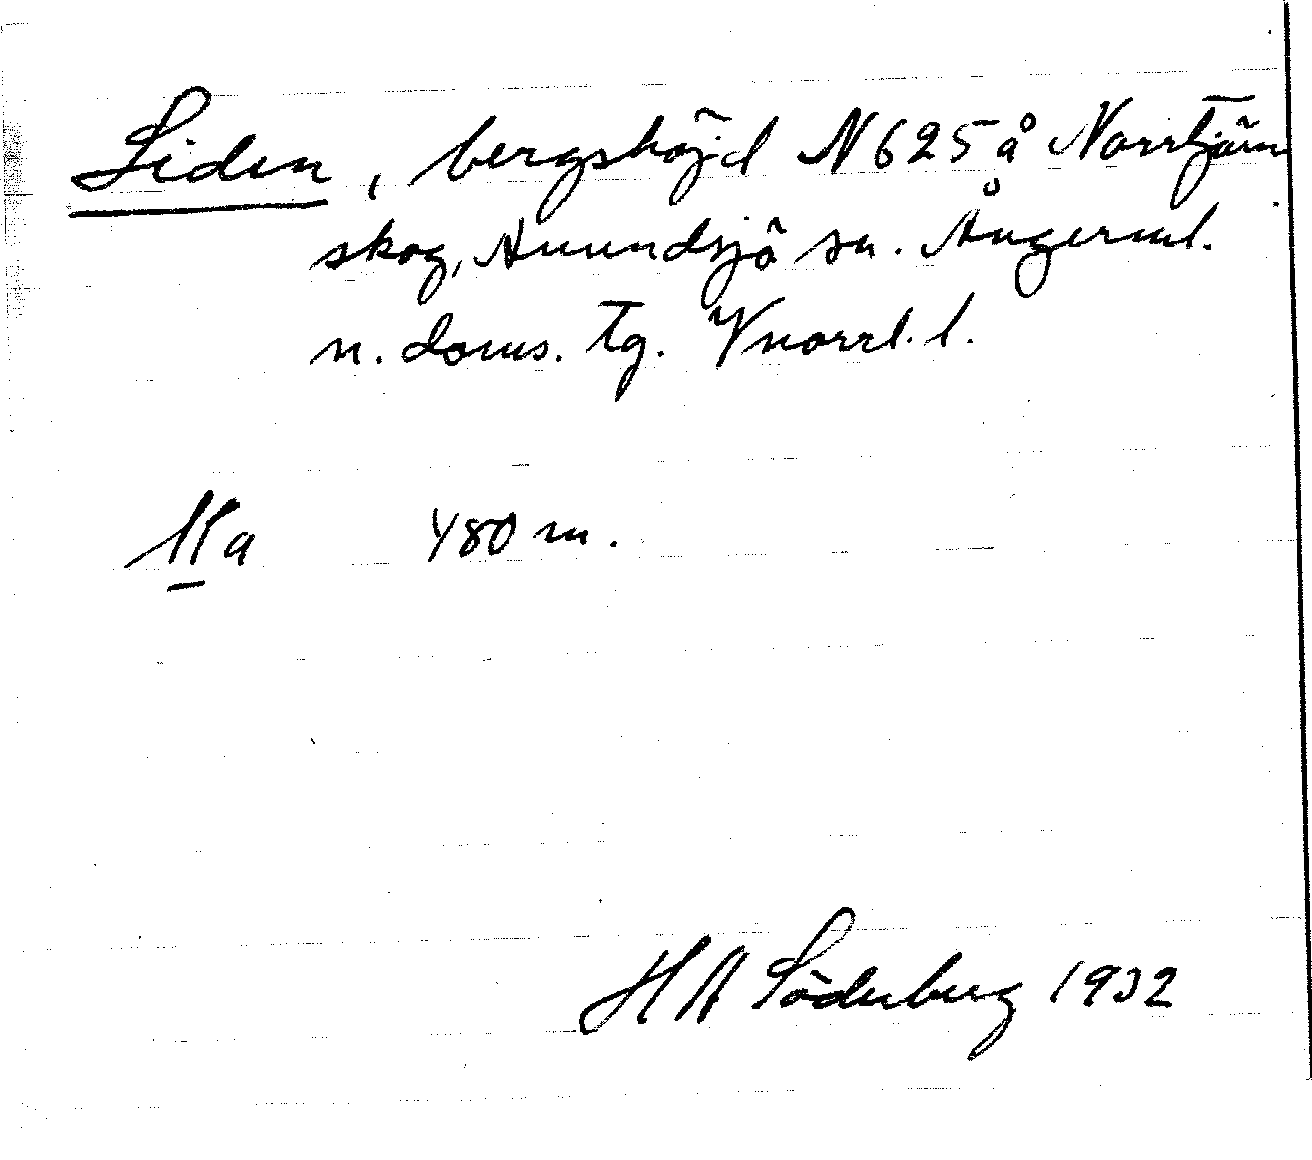 Liden, bergshöjd N 625 å Norrtjärn
skog, Anundsjö sn. Ångerml.
n. doms. tg. Vnorrl. l.
Ma 480 m.
H A Söderberg 1932